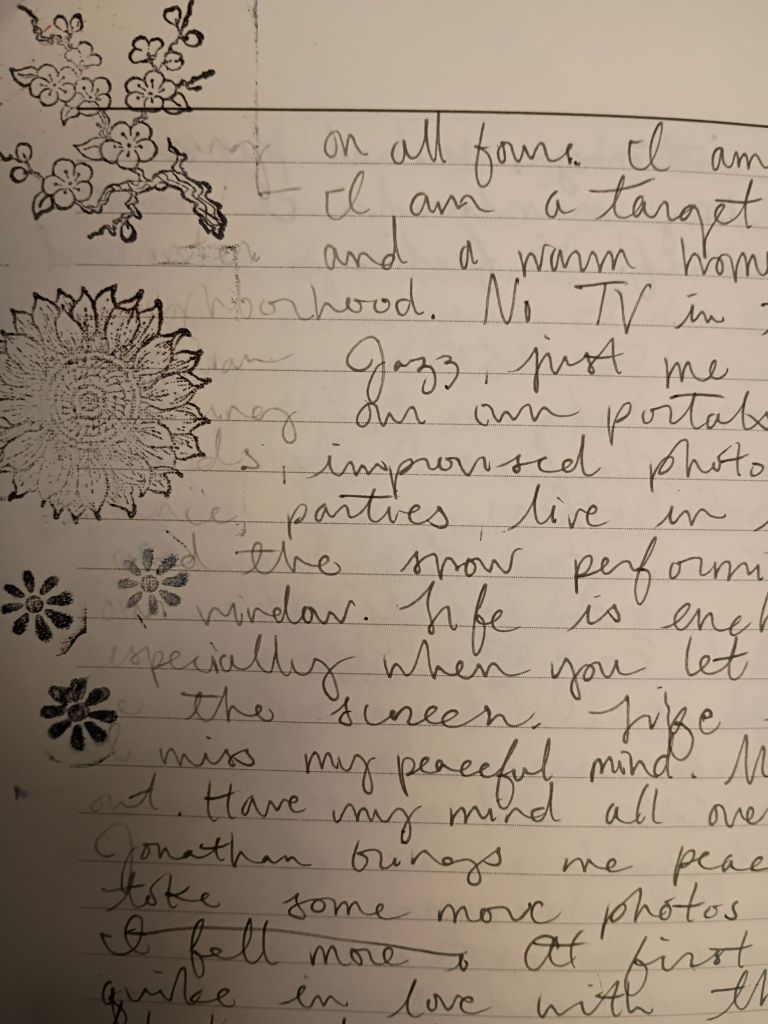 on all fours. I am
I am a target
and a warm hom
hborhood. No TV in
Jazz, just me
our own portab
ds, improvised photo
parties, live in
the snow performi
window. Life is ench
especially when you let
the screen. Life
miss my peaceful mind. M
out. Have my mind all ove
Jonathan brings me peac
take some more photos
I fell more At first
quike in love with th